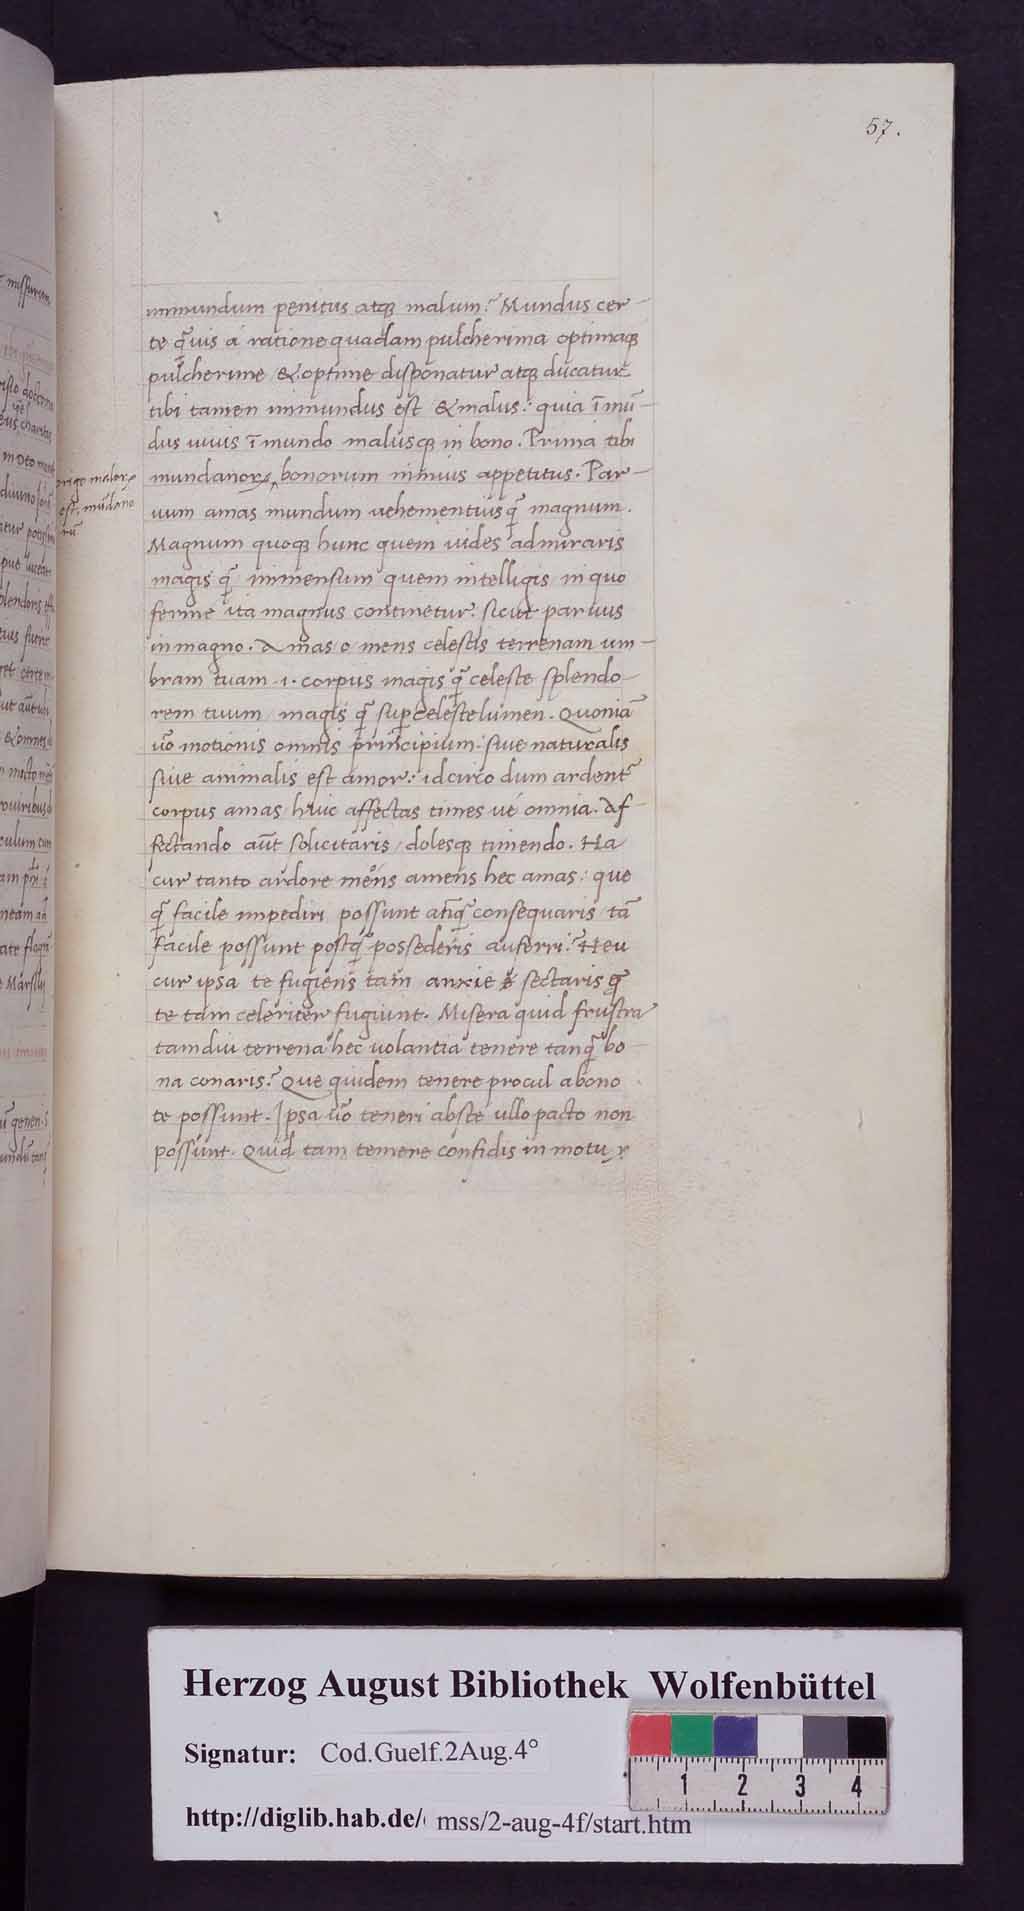 57.
immundum penitus atq̃ malum? Mundus cer-
te q̃uis á ratione quadam pulcherima optimaq̃
pulcherime & optime disponatur atq̃ ducatur
tibi tamen immundus est & malus: quia ĩmũ-
dus uiuis ĩ mundo malusq̃ in bono. Prima tibi
mundanorꝝ ‸ bonorum nimius appetitus. Par-
origo malorꝝ
est, mũdano
rũ
uum amas mundum uehementius q̃ magnum.
Magnum quoq̃ hunc quem uides admiraris
magis q̃ immensum quem intelligis in quo
ferme ita magnus continetur: sicut paruus
in magno. Amas o mens celestis terrenam um-
bram tuam .i. corpus magis q̃ celeste splendo-
rem tuum / magis q̃ supcelestelumen. Quoniã
ũo motionis omnis principium: siue naturalis
siue animalis est amor: idcirco dum ardent̃
corpus amas huic affectas times ué omnia. Af-
fectando aũt solicitaris / dolesq̃ timendo. Ha
cur tanto ardore mens amens hec amas: que
q̃ facile impediri possunt anq̃ consequaris tã
facile possunt postq̃ possederis auferri? Heu
cur ipsa te fugiens tam anxie sectaris q̃
te tam celeriter fugiunt. Misera quid frustra
tamdiu terrena hec uolantia tenere tanq̃ bo-
na conaris? Que quidem tenere procul abono
te possunt. Ipsa ũo teneri abste ullo pacto non
possunt. Quid tam temere confidis in motu
Herzog August Bibliothek Wolfenbüttel
Signatur: Cod.Guelf.2Aug.4°
http://diglib.hab.de/ mss/2-aug-4f/start.htm
1 2 3 4